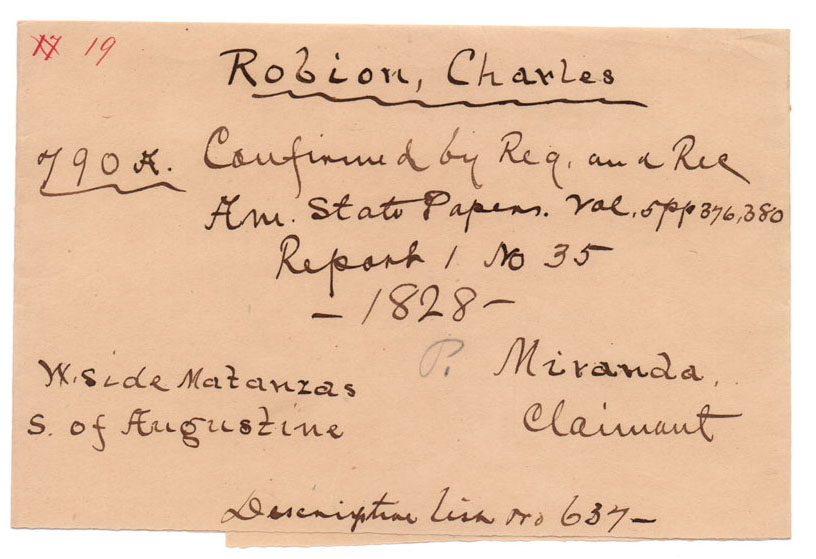 17 19
Robion, Charles
790 A. Confirmed by Reg. and Rec
Am. State Papers. Vol. 5 pp 376, 380
Report 1 No 35
- 1828 -
W. side Matanzas
S. of Augustine
P. Miranda,
Claimant
Descriptive List No 637-